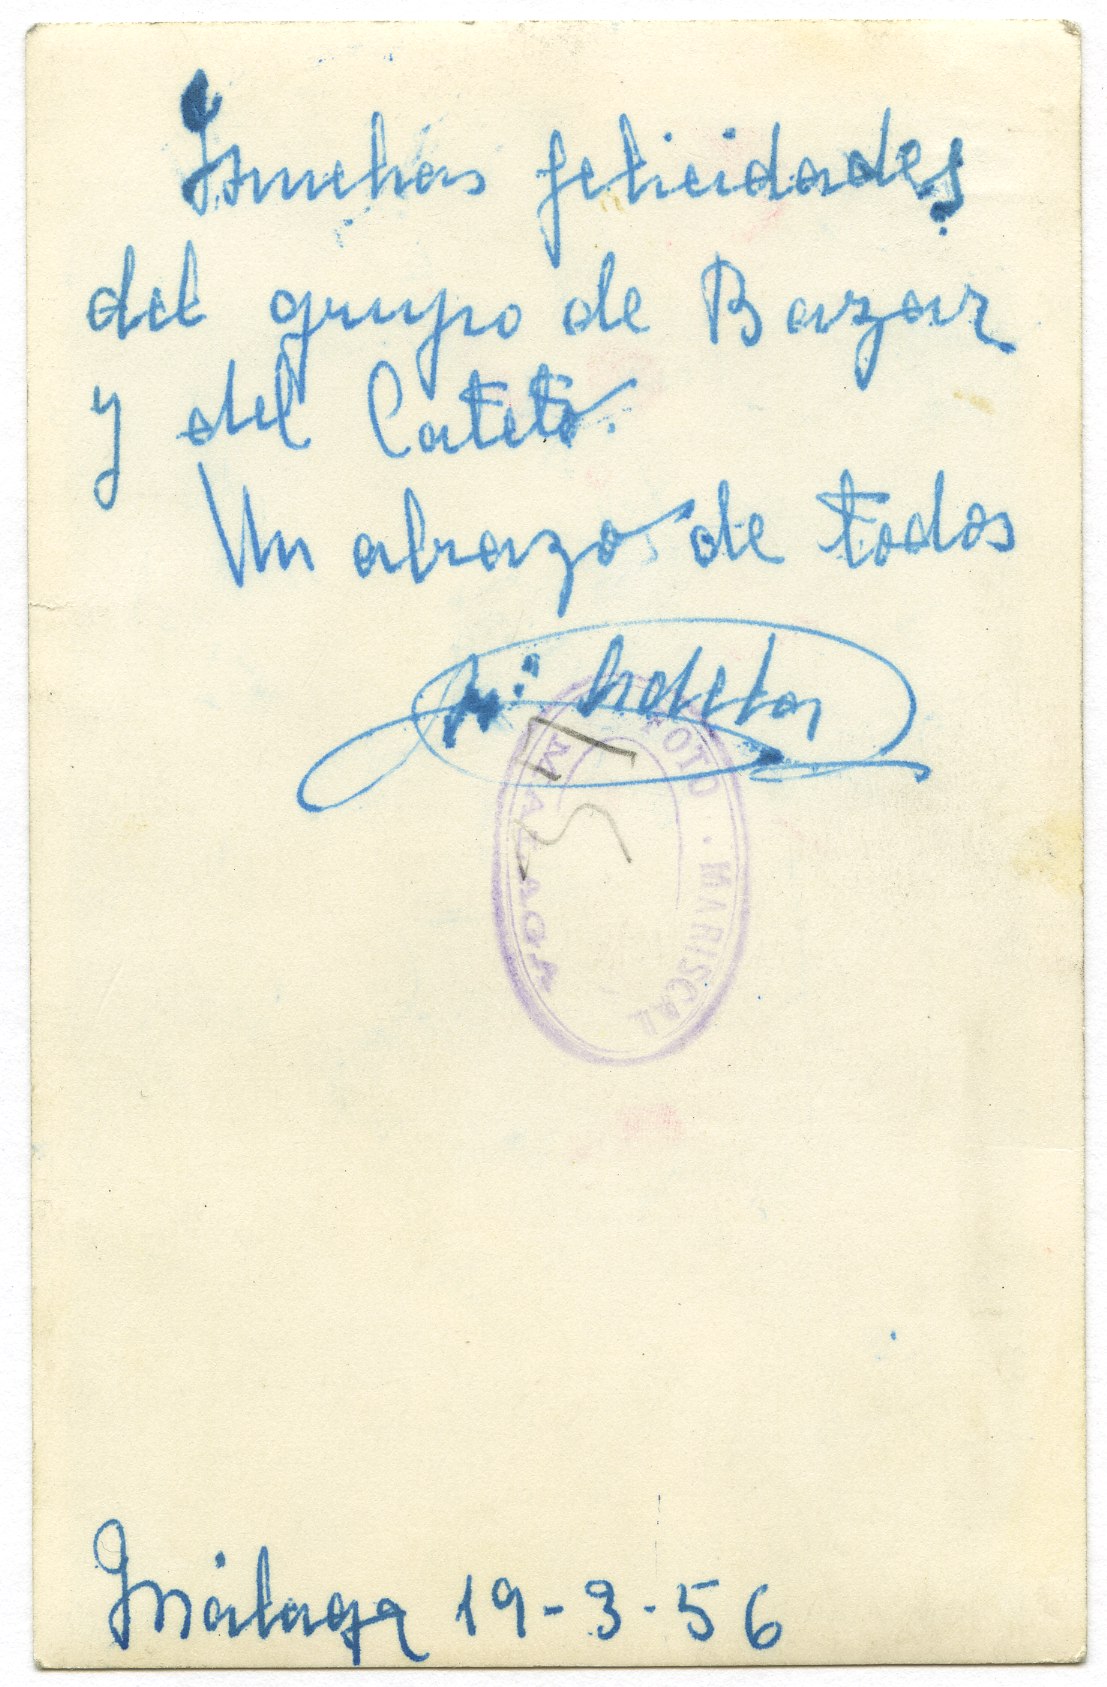 Muchas felicidades
del grupo de Bazar
y del Cateto.
Un abrazo de todos
Mª
FOTO · MARISCAL
MALAGA
Málaga 19-3-56